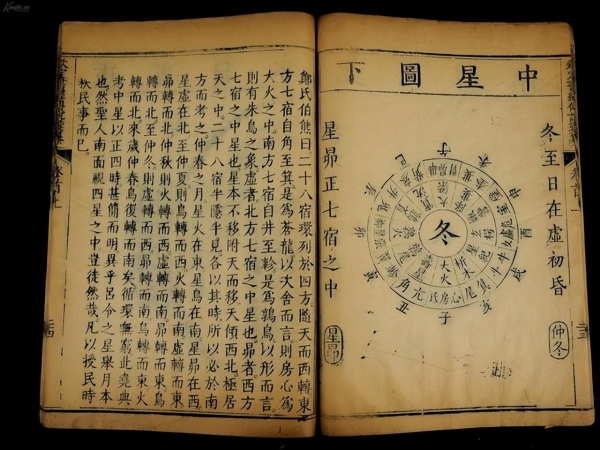 中星圖下
冬至日在虛初昏
仲冬
星昴正七宿之中
星昴
冬
子
丑
寅
辰
巳
申
酉
戌
亥
大火
析木
角亢氐房心尾箕
牛女虛危
鄭氏伯熊曰二十八宿環列於四方隨天而西轉東
方七宿自角至箕是為蒼龍以次舍而言則房心為
大火之中南方七宿自井至軫是為鶉鳥以形而言
則有朱鳥之象虛者北方七宿之中星也昴者西方
七宿之中星也星本不移附天而移天傾西北極居
天之中二十八宿半隱半見各以其時所以必於南
方而考之仲春之月星火在東星鳥在南星昴在西
星虛在北至仲夏則鳥轉而西火轉而南虛轉而東
昴轉而北至仲秋則火轉而西虛轉而南昴轉而東鳥
轉而北至仲冬則虛轉而西昴轉而南鳥轉而東火
轉而北來歲仲春鳥復轉而南矣循環無窮此堯典
考中星以正四時甚簡而明異乎呂令之星舉月本
也然聖人南面視四星之中豈徒然哉凡以授民時
秩民事而已